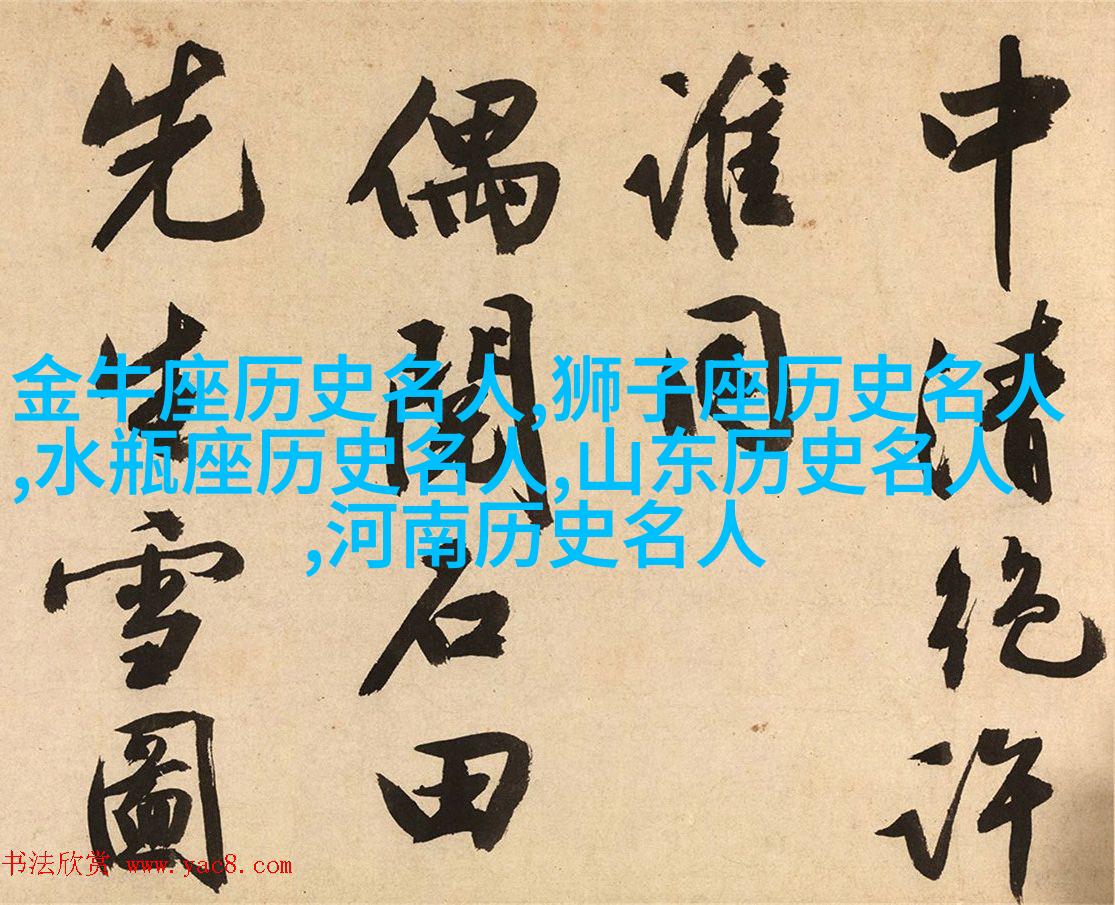 中清絶許
誰同
偶閱石田
先生雪圖
金牛座历史名人,狮子座历史名人
,水瓶座历史名人,山东历史名人
,河南历史名人
书法欣赏 www.yac8.com